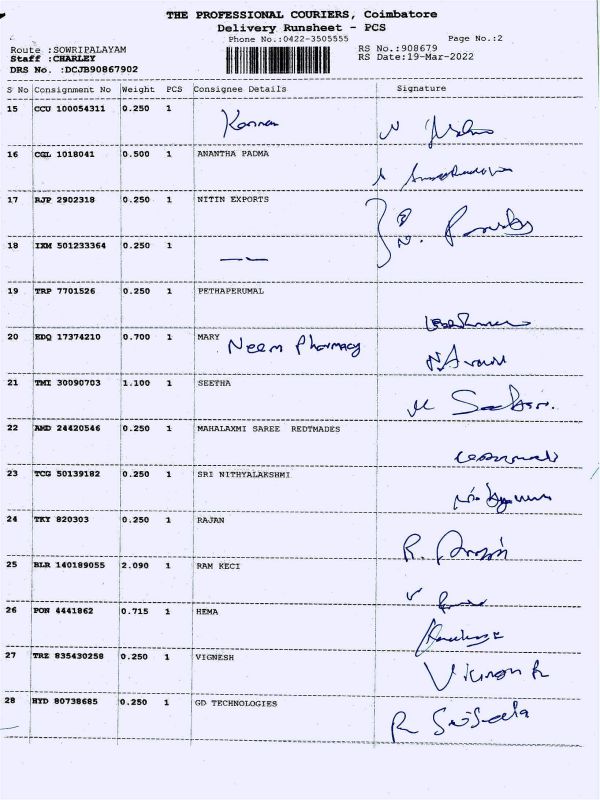 THE PROFESSIONAL COURIERS, Coimbatore
Delivery Runsheet - PCS
Phone No.:0422-3505555 Page No.:2
Route :SOWRIPALAYAM RS No.:908679
Staff :CHARLEY RS Date:19-Mar-2022
DRS No. :DCJB90867902
S No Consignment No Weight PCS Consignee Details Signature
15 CCU 100054311 0.250 1 Kannan
16 CGL 1018041 0.500 1 ANANTHA PADMA
17 RJP 2902318 0.250 1 NITIN EXPORTS
18 IXM 501233364 0.250 1
19 TRP 7701526 0.250 1 PETHAPERUMAL
20 EDQ 17374210 0.700 1 MARY Neem Pharmacy
21 TMI 30090703 1.100 1 SEETHA
22 AMD 24420546 0.250 1 MAHALAXMI SAREE REDTMADES
23 TCG 50139182 0.250 1 SRI NITHYALAKSHMI
24 TKY 820303 0.250 1 RAJAN
25 BLR 140189055 2.090 1 RAM KECI
26 PON 4441862 0.715 1 HEMA
27 TRZ 835430258 0.250 1 VIGNESH
28 HYD 80738685 0.250 1 GD TECHNOLOGIES